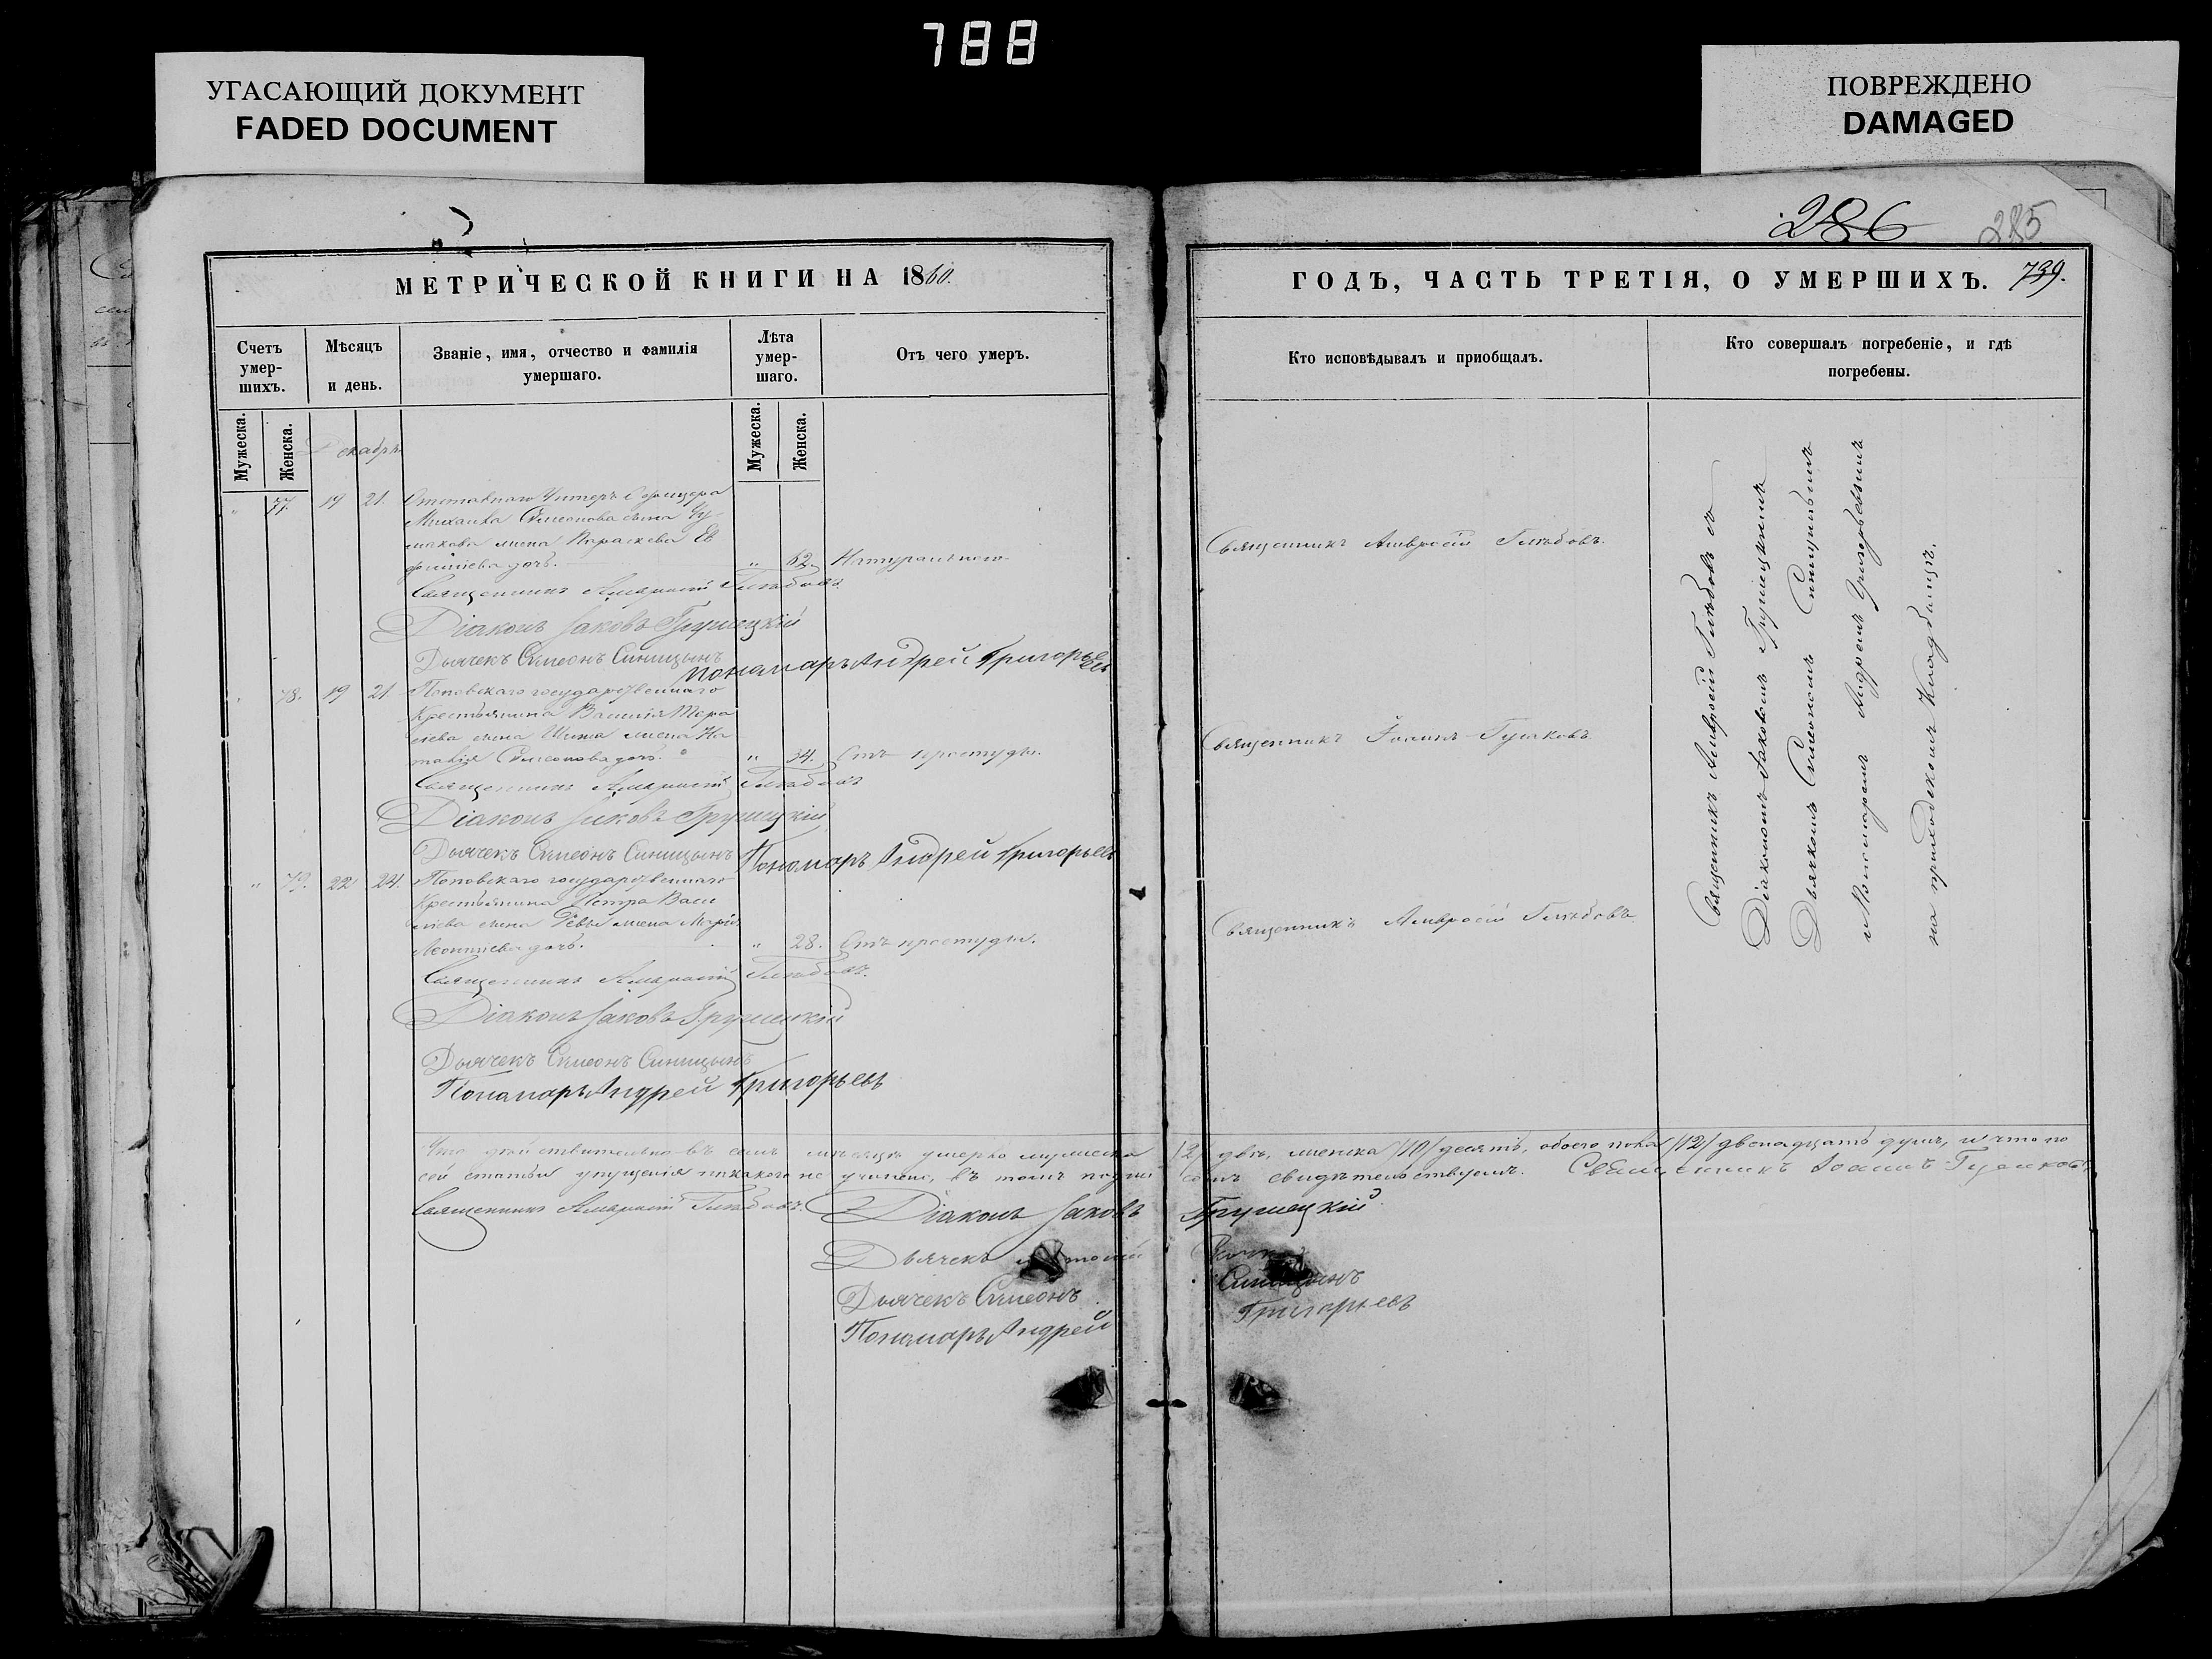 788
УГАСАЮЩИЙ ДОКУМЕНТ
FADED DOCUMENT
ПОВРЕЖДЕНО
DAMAGED
286
285
МЕТРИЧЕСКОЙ КНИГИ НА 1860.
Счетъ умер-шихъ.
Мѣсяцъ и день.
Званіе, имя, отчество и фамилія умершаго.
Лѣта умер-шаго.
Отъ чего умеръ.
Мужеска.
Женска.
Декабрь
Мужеска.
Женска.
" 77. 19 21. Отставнаго Унтеръ Офицера
Михаила Симеонова сына
жена Параскева Ев
фиміева дочь. " 62. Натурально
Священникъ Амвросій Глѣбовъ.
Діаконъ Іаковъ Грушецкій
Дьячекъ Симеонъ Синицынъ
Пономарь Андрей Григорьевъ
" 78. 19 21. Поповскаго государственнаго
Крестьянина Василія Тера
сіева сына жена На
талія Симеонова дочь. " 34. Отъ простуды.
Священникъ Амвросій Глѣбовъ
Діаконъ Іаковъ Грушецкій
Дьячекъ Симеонъ Синицынъ Пономарь Андрей Григорьевъ
" 79. 22 24. Поповскаго государственнаго
Крестьянина Петра Васи
лієва сына жена Марія
Леонтіева дочь. " 28. Отъ простуды.
Священникъ Амвросій Глѣбовъ.
Діаконъ Іаковъ Грушецкій
Дьячекъ Симеонъ Синицынъ
Пономарь Андрей Григорьевъ
ГОДЪ, ЧАСТЬ ТРЕТІЯ, О УМЕРШИХЪ. 739.
Кто исповѣдывалъ и приобщалъ.
Кто совершалъ погребеніе, и гдѣ погребены.
Священникъ Амвросій Глѣбовъ.
Священникъ Іоаннъ Гулаковъ.
Священникъ Амвросій Глѣбовъ.
Священникъ Амвросій Глѣбовъ съ
Діакономъ Іаковомъ Грушецкимъ
Дьячкомъ Симеономъ Синицынымъ
и Пономаремъ Андреемъ Григорьевымъ
на приходскомъ Кладбищѣ.
Что дѣйствительно въ семъ мѣсяцѣ умерло мужеска /2/ двѣ, женска /10/ десять, обоего пола /12/ двенадцать душъ, и что по
сей статьи упущенія никакого не учинено, въ томъ подписомъ свидѣтельствуемъ. Священникъ Іоаннъ Гулаковъ
Священникъ Амвросій Глѣбовъ. Діаконъ Іаковъ Грушецкій
Дьячекъ
Дьячекъ Симеонъ Синицынъ
Пономарь Андрей Григорьевъ